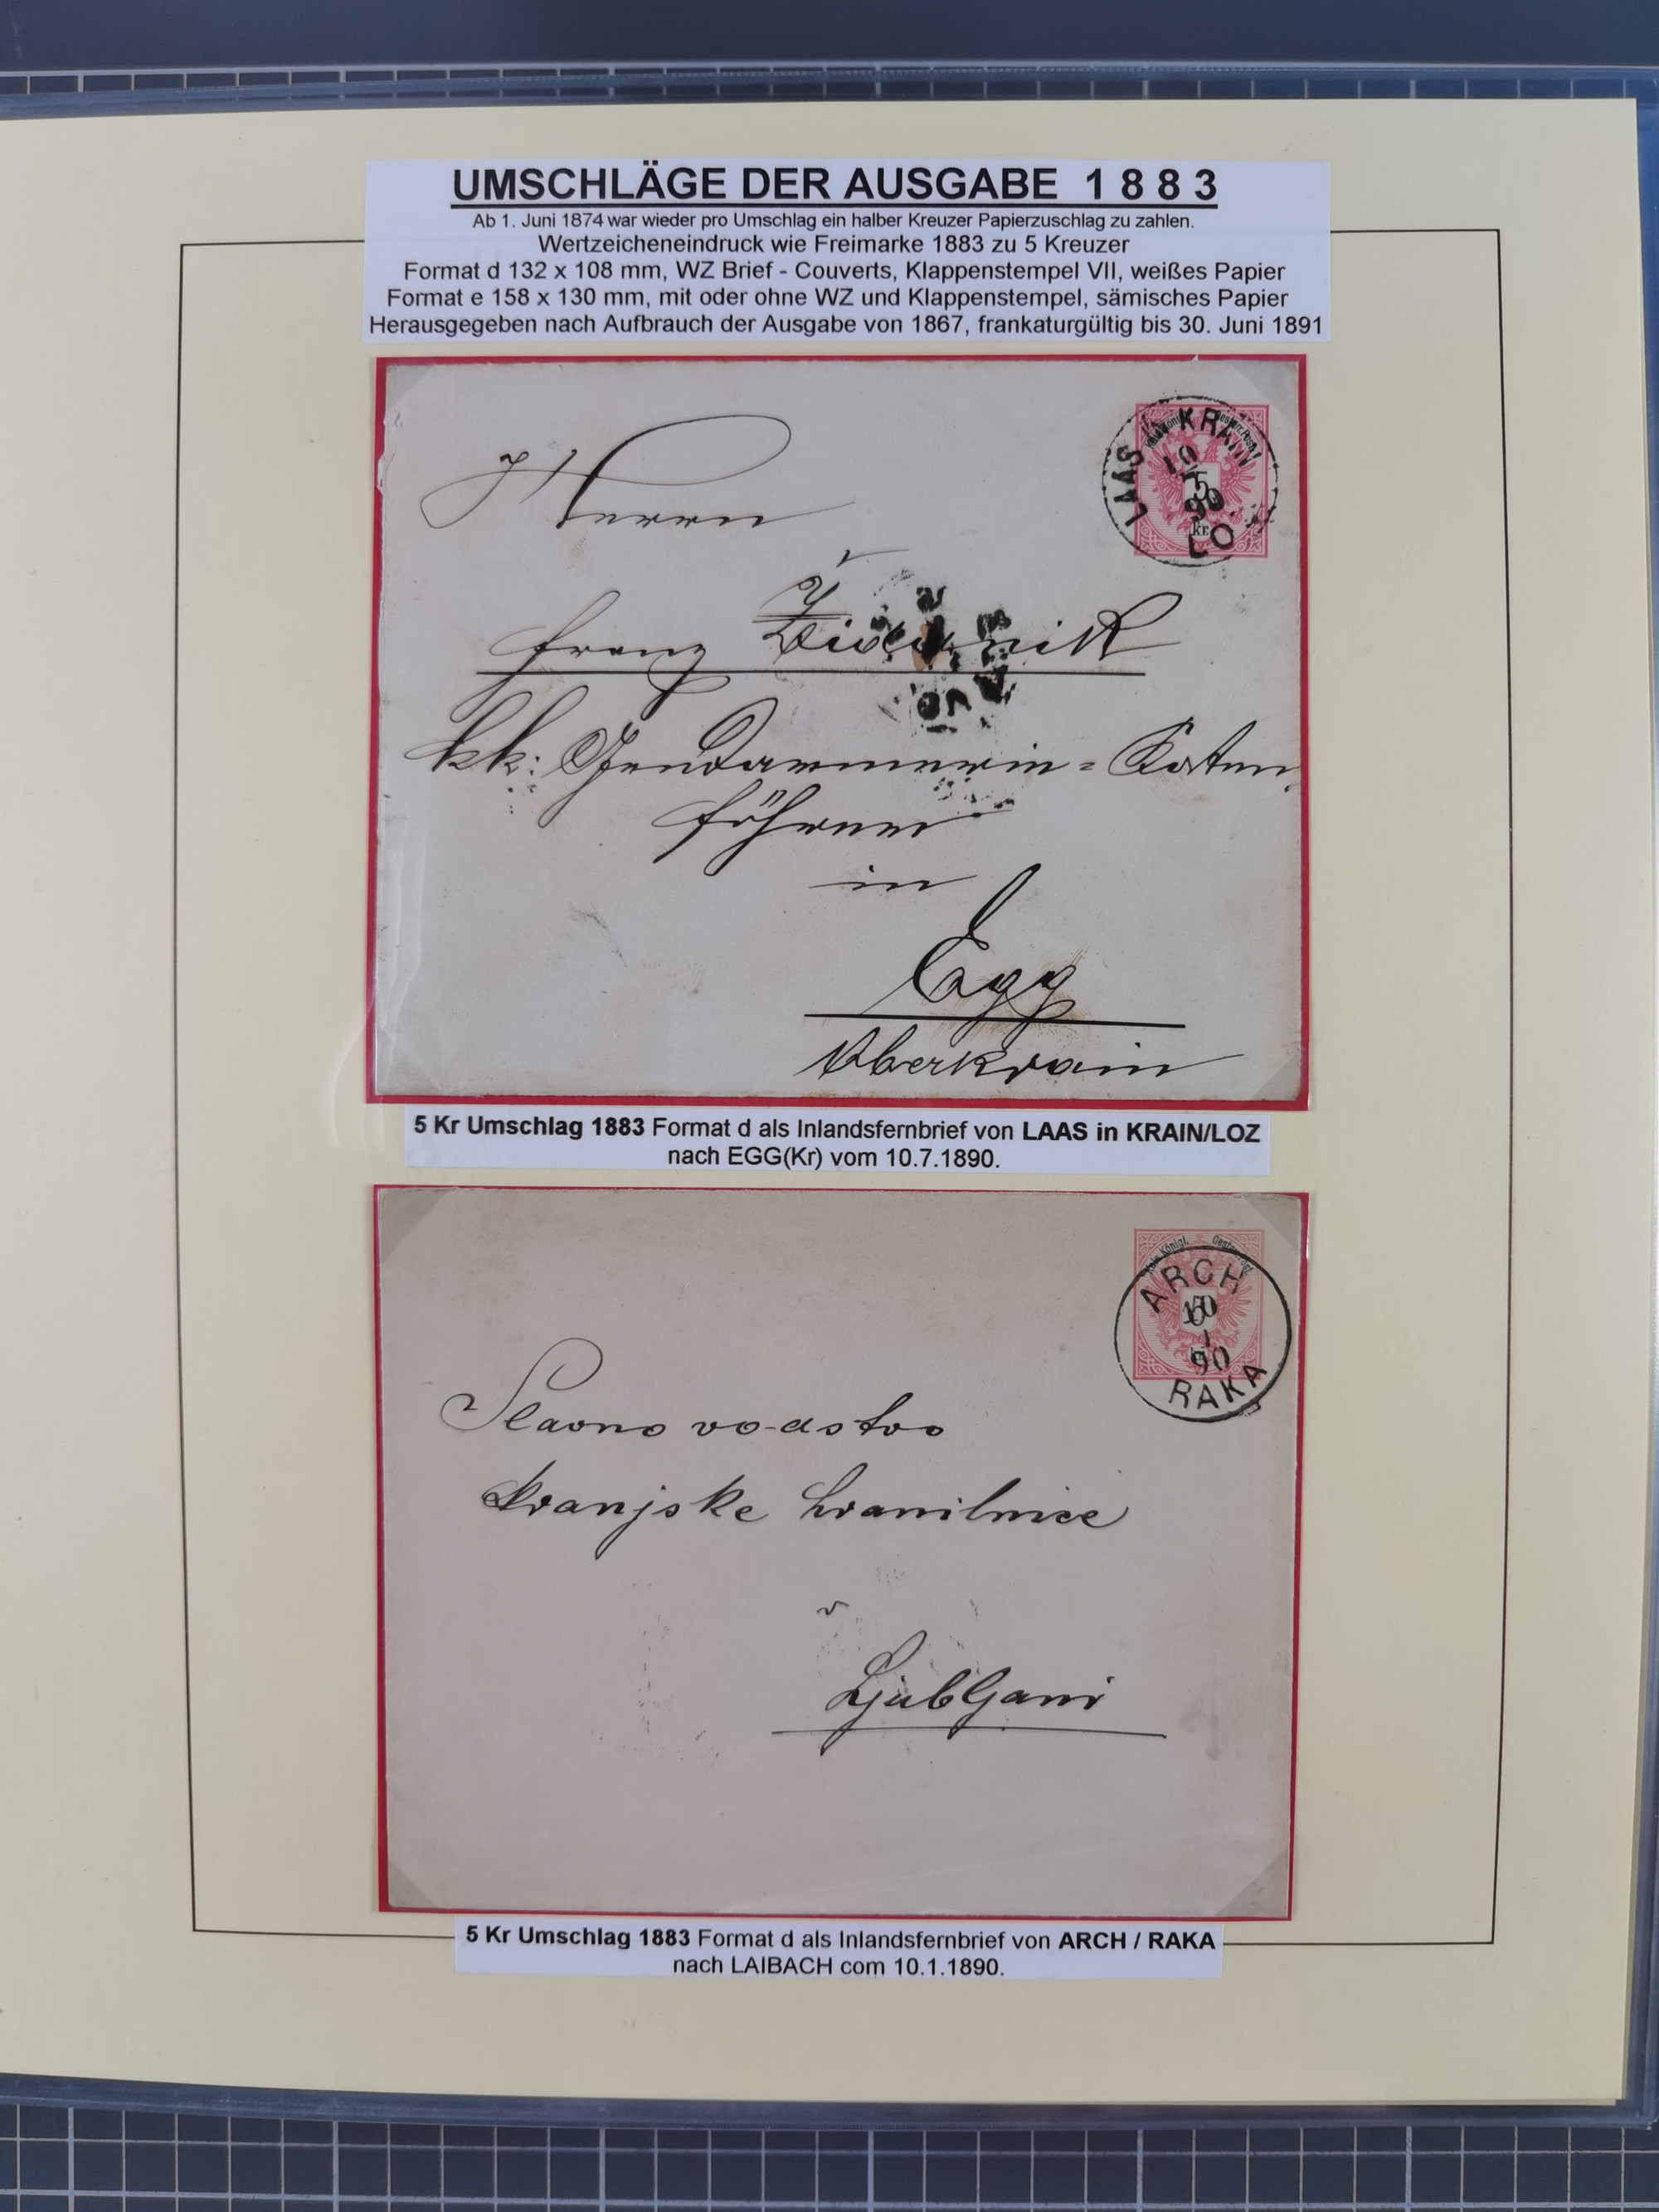 UMSCHLÄGE DER AUSGABE 1 8 8 3
Ab 1. Juni 1874 war wieder pro Umschlag ein halber Kreuzer Papierzuschlag zu zahlen.
Wertzeicheneindruck wie Freimarke 1883 zu 5 Kreuzer
Format d 132 x 108 mm, WZ Brief - Couverts, Klappenstempel VII, weißes Papier
Format e 158 x 130 mm, mit oder ohne WZ und Klappenstempel, sämisches Papier
Herausgegeben nach Aufbrauch der Ausgabe von 1867, frankaturgültig bis 30. Juni 1891
LAAS IN KRAIN
10
5
90
kr.
LO
Herrn
Franz
kk: Gendarmerie=Posten
führer
in
Egg
Oberkrain
5 Kr Umschlag 1883 Format d als Inlandsfernbrief von LAAS in KRAIN/LOZ
nach EGG(Kr) vom 10.7.1890.
ARCH
10
1
90
RAKA
Slavno vodstvo
kranjske hranilnice
v
Ljubljani
5 Kr Umschlag 1883 Format d als Inlandsfernbrief von ARCH / RAKA
nach LAIBACH com 10.1.1890.